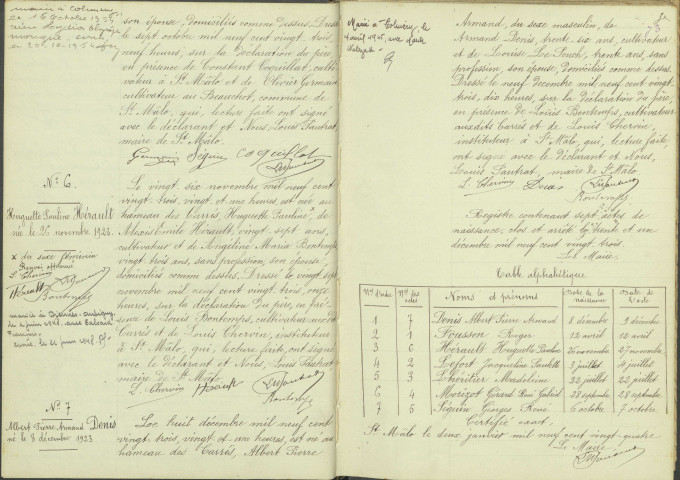 son épouse, domiciliés comme dessus. Dressé
le sept octobre mil neuf cent vingt-trois,
neuf heures, sur la déclaration du père,
en présence de Constant Coquillat, culti-
vateur à St Malo et de Olivier Germain
cultivateur au Beauchot, commune de
St Malo, qui, lecture faite ont signé
avec le déclarant et Nous, Louis Pautrat,
maire de St Malo.
Germain Seguin Coquillat
N° 6
Huguette Pauline Hérault
née le 26 novembre 1923
x du sexe féminin
L. Chervin
Hérault
Bontemps
Le vingt six novembre mil neuf cent
vingt-trois, vingt et une heures, est née au
hameau des Carrés, Huguette Pauline x, de
Alexis Emile Hérault, vingt sept ans,
cultivateur et de Angéline Maria Bontemps,
vingt trois ans, sans profession, son épouse,
domiciliés comme dessus. Dressé le vingt sept
novembre mil neuf cent vingt-trois, onze
heures, sur la déclaration du père, en pré-
sence de Louis Bontemps, cultivateur aux
Carrés et de Louis Chervin, instituteur
à St Malo, qui, lecture faite, ont signé
avec le déclarant et Nous, Louis Pautrat
maire de St Malo
L. Chervin Hérault
Bontemps
N° 7
Albert Pierre Armand Denis
né le 8 décembre 1923
Le huit décembre mil neuf cent
vingt-trois, vingt et une heures, est né au
hameau des Carrés, Albert Pierre
Armand, du sexe masculin, de
Armand Denis, trente six ans, cultivateur
et de Louise trente ans, sans
profession, son épouse, domiciliés comme dessus.
Dressé le neuf décembre mil neuf cent vingt
trois, dix heures, sur la déclaration du père,
en présence de Louis Bontemps, cultivateur
aux dits Carrés et de Louis Chervin,
instituteur à St Malo, qui, lecture faite,
ont signé avec le déclarant et Nous,
Louis Pautrat, maire de St Malo.
L. Chervin Denis
Bontemps
Registre contenant sept actes de
naissance, clos et arrêté le trente et un
décembre mil neuf cent vingt trois.
Le Maire,
Table alphabétique
Nos d'ordre Nos des actes Noms et prénoms Date de la naissance Date de l'acte
1 7 Denis Albert Pierre Armand 8 décembre 9 décembre
2 1 Roger 12 avril 12 avril
3 6 Hérault Huguette Pauline 26 novembre 27 novembre
4 2 Lefort Jacqueline 3 juillet 4 juillet
5 3 Lheritier Madeleine 22 juillet 22 juillet
6 4 Morizot Gérard René Gabriel 28 septembre 28 septembre
7 5 Seguin Georges René 6 octobre 7 octobre
Certifié exact.
St Malo le deux janvier mil neuf cent vingt-quatre
Le Maire